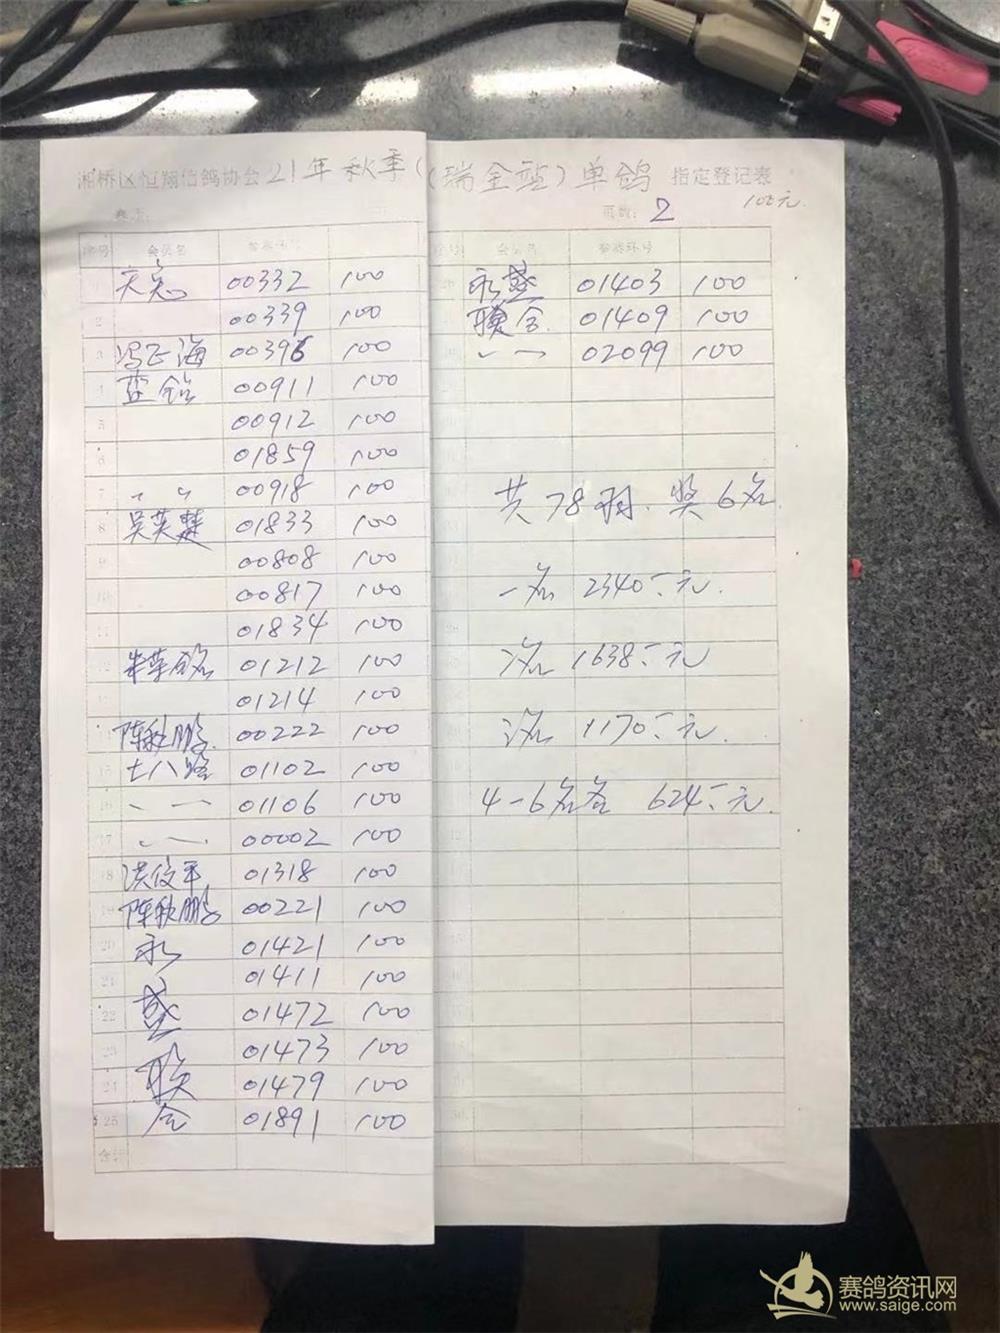 湘桥区恒翔信鸽协会21年秋季(瑞金站)单鸽 指定登记表
页数: 2 100元
序号 会员名 参赛环号
1 00332 100
2 00339 100
3 冯正海 00396 100
4 00911 100
5 00912 100
6 01859 100
7 、、 00918 100
8 吴英楚 01833 100
9 00808 100
10 00817 100
11 01834 100
12 朱荣铭 01212 100
13 01214 100
14 陈秋鹏 00222 100
15 十八路 01102 100
16 01106 100
17 00002 100
18 洪俊平 01318 100
19 陈秋鹏 00221 100
20 永 01421 100
21 01411 100
22 盛 01472 100
23 01473 100
24 联 01479 100
25 合 01891 100
合计
序号 会员名 参赛环号
永盛 01403 100
联合 01409 100
02099 100
共78羽.奖6名
一名 2340元.
2名 1638元
3名 1170元.
4-6名各 624元.
赛鸽资讯网
www.saige.com